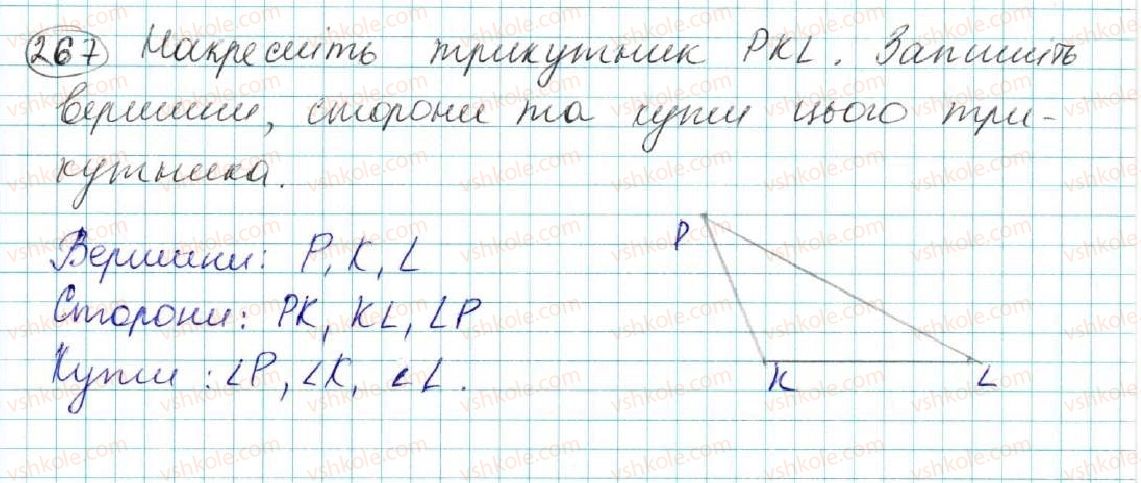 267 Накресліть трикутник PKL. Запишіть
вершини, сторони та кути цього три-
кутника.
Вершини: P, K, L
Сторони: PK, KL, LP
Кути: ∠P, ∠K, ∠L.
P
K
L